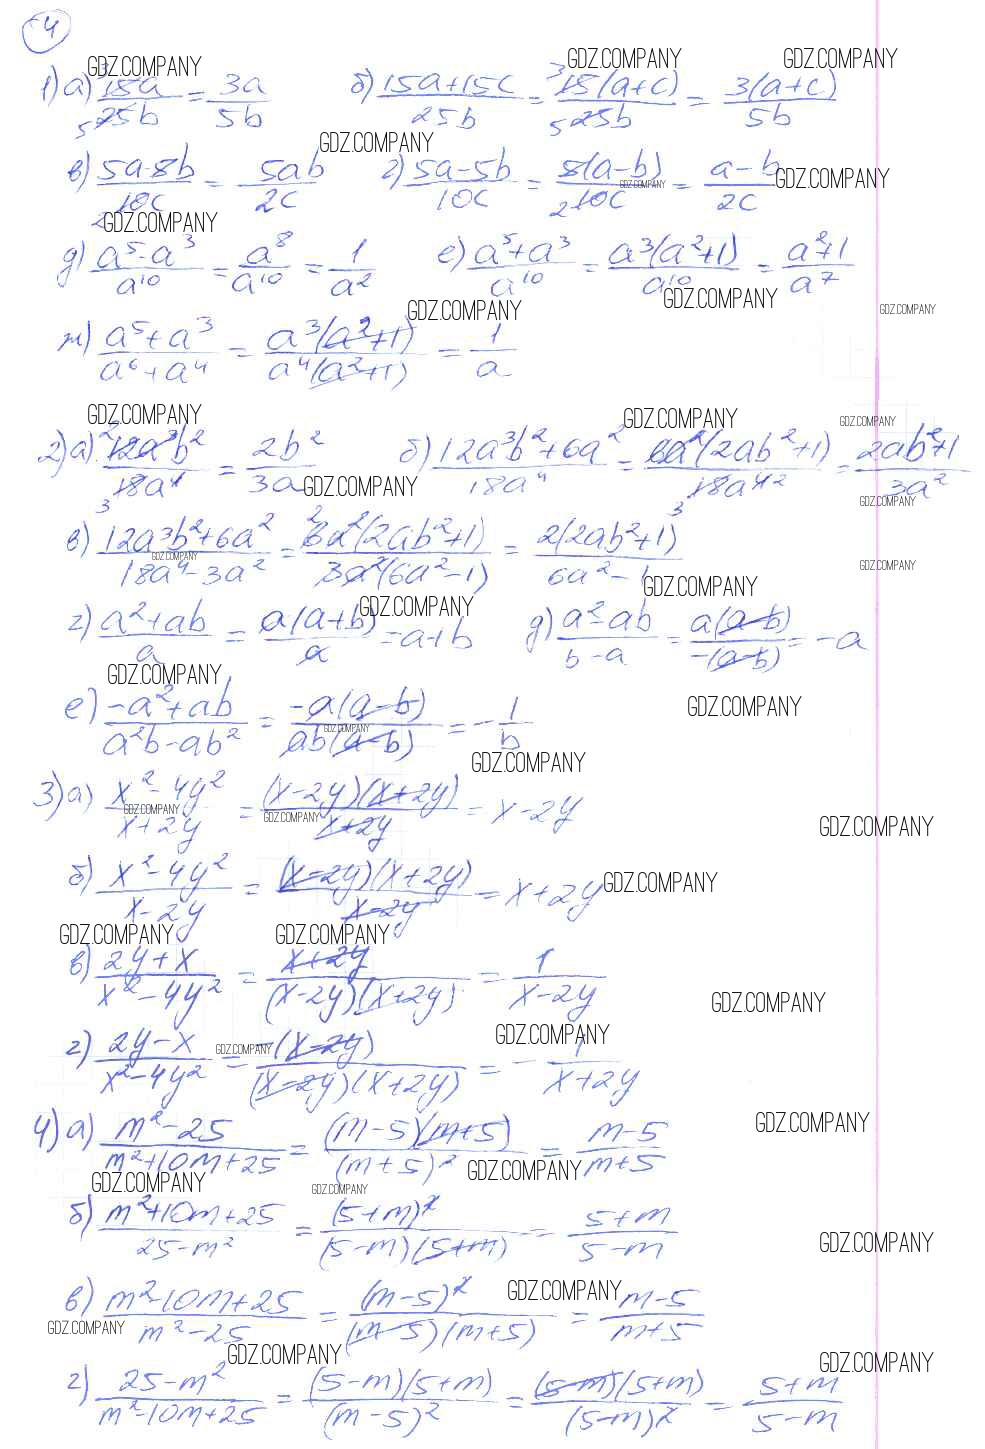 4
GDZ.COMPANY GDZ.COMPANY GDZ.COMPANY
1) а) 15a/25b = 3a/5b б) (15a+15c)/25b = 15(a+c)/25b = 3(a+c)/5b
GDZ.COMPANY
в) 5a·8b/10c = 5ab/2c г) (5a-5b)/10c = 5(a-b)/10c = (a-b)/2c
GDZ.COMPANY GDZ.COMPANY GDZ.COMPANY
д) a⁵·a³/a¹⁰ = a⁸/a¹⁰ = 1/a² е) (a⁵+a³)/a¹⁰ = a³(a²+1)/a¹⁰ = (a²+1)/a⁷
GDZ.COMPANY GDZ.COMPANY GDZ.COMPANY
ж) (a⁵+a³)/(a⁶+a⁴) = a³(a²+1)/a⁴(a²+1) = 1/a
GDZ.COMPANY GDZ.COMPANY GDZ.COMPANY
2) а) 12a³b²/18a⁴ = 2b²/3a б) (12a³b²+6a²)/18a⁴ = 6a²(2ab²+1)/18a⁴ = (2ab²+1)/3a²
GDZ.COMPANY GDZ.COMPANY
в) (12a³b²+6a²)/(18a⁴-3a²) = 6a²(2ab²+1)/3a²(6a²-1) = 2(2ab²+1)/(6a²-1)
GDZ.COMPANY GDZ.COMPANY GDZ.COMPANY GDZ.COMPANY
г) (a²+ab)/a = a(a+b)/a = a+b д) (a²-ab)/(b-a) = a(a-b)/-(a-b) = -a
GDZ.COMPANY
е) (-a²+ab)/(a²b-ab²) = -a(a-b)/ab(a-b) = -1/b
GDZ.COMPANY GDZ.COMPANY GDZ.COMPANY
3) а) (x²-4y²)/(x+2y) = (x-2y)(x+2y)/(x+2y) = x-2y
GDZ.COMPANY GDZ.COMPANY GDZ.COMPANY
б) (x²-4y²)/(x-2y) = (x-2y)(x+2y)/(x-2y) = x+2y
GDZ.COMPANY
GDZ.COMPANY GDZ.COMPANY
в) (2y+x)/(x²-4y²) = (x+2y)/(x-2y)(x+2y) = 1/(x-2y)
GDZ.COMPANY GDZ.COMPANY
г) (2y-x)/(x²-4y²) = -(x-2y)/(x-2y)(x+2y) = -1/(x+2y)
GDZ.COMPANY
4) а) (m²-25)/(m²+10m+25) = (m-5)(m+5)/(m+5)² = (m-5)/(m+5)
GDZ.COMPANY
GDZ.COMPANY GDZ.COMPANY GDZ.COMPANY
б) (m²+10m+25)/(25-m²) = (5+m)²/(5-m)(5+m) = (5+m)/(5-m)
GDZ.COMPANY
в) (m²-10m+25)/(m²-25) = (m-5)²/(m-5)(m+5) = (m-5)/(m+5)
GDZ.COMPANY GDZ.COMPANY
GDZ.COMPANY GDZ.COMPANY
г) (25-m²)/(m²-10m+25) = (5-m)(5+m)/(m-5)² = (5-m)(5+m)/(5-m)² = (5+m)/(5-m)